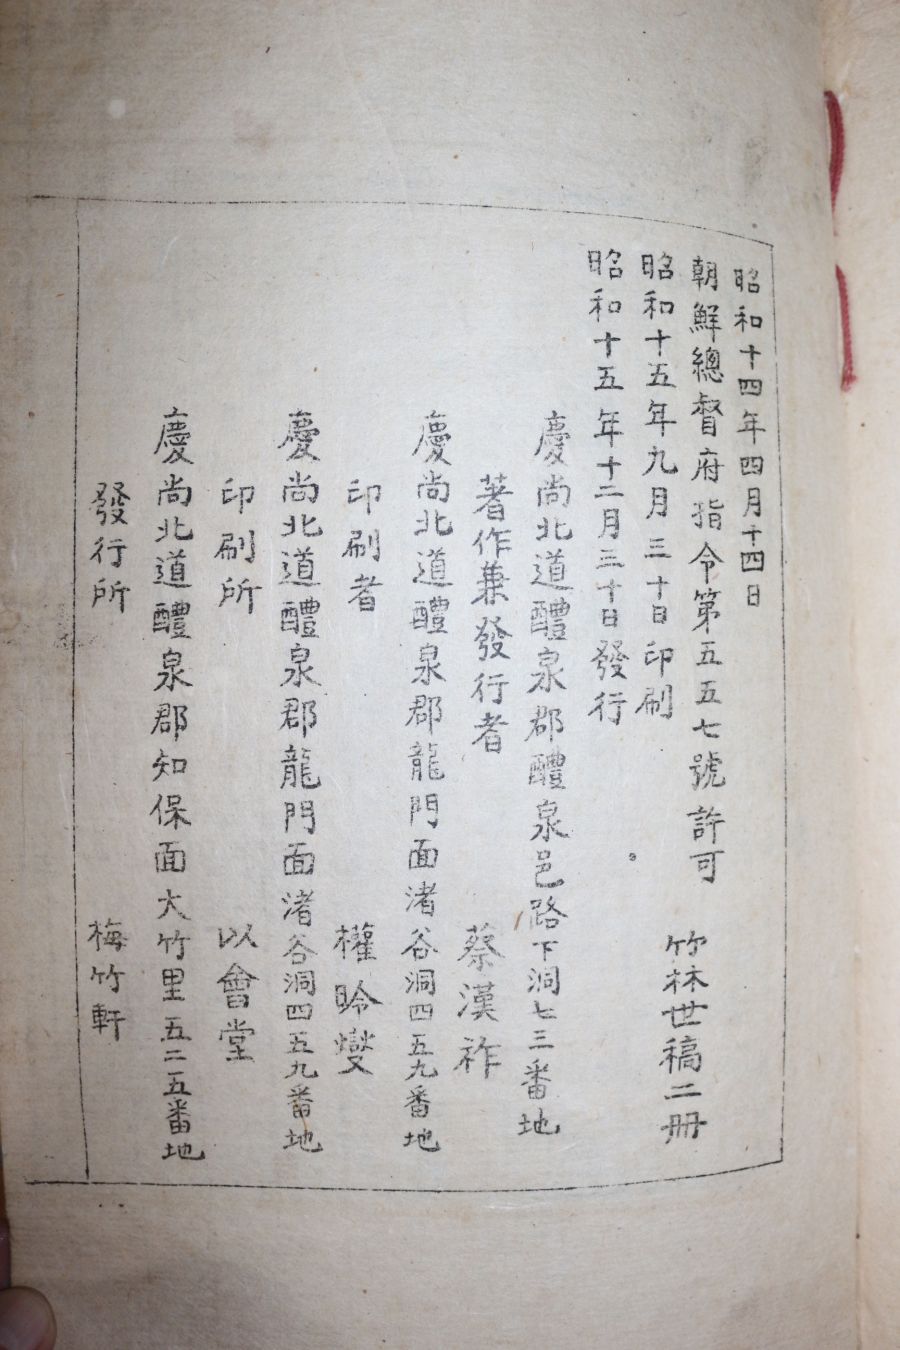 昭和十四年四月十四日
朝鮮總督府指令第五五七號許可
竹林世稿二册
昭和十五年九月三十日印刷
昭和十五年十二月三十日發行
慶尚北道醴泉郡醴泉邑路下洞七三番地
著作兼發行者 蔡漢祚
慶尚北道醴泉郡龍門面渚谷洞四五九番地
印刷者 權昤燮
慶尚北道醴泉郡龍門面渚谷洞四五九番地
印刷所 以會堂
慶尚北道醴泉郡知保面大竹里五二五番地
發行所 梅竹軒